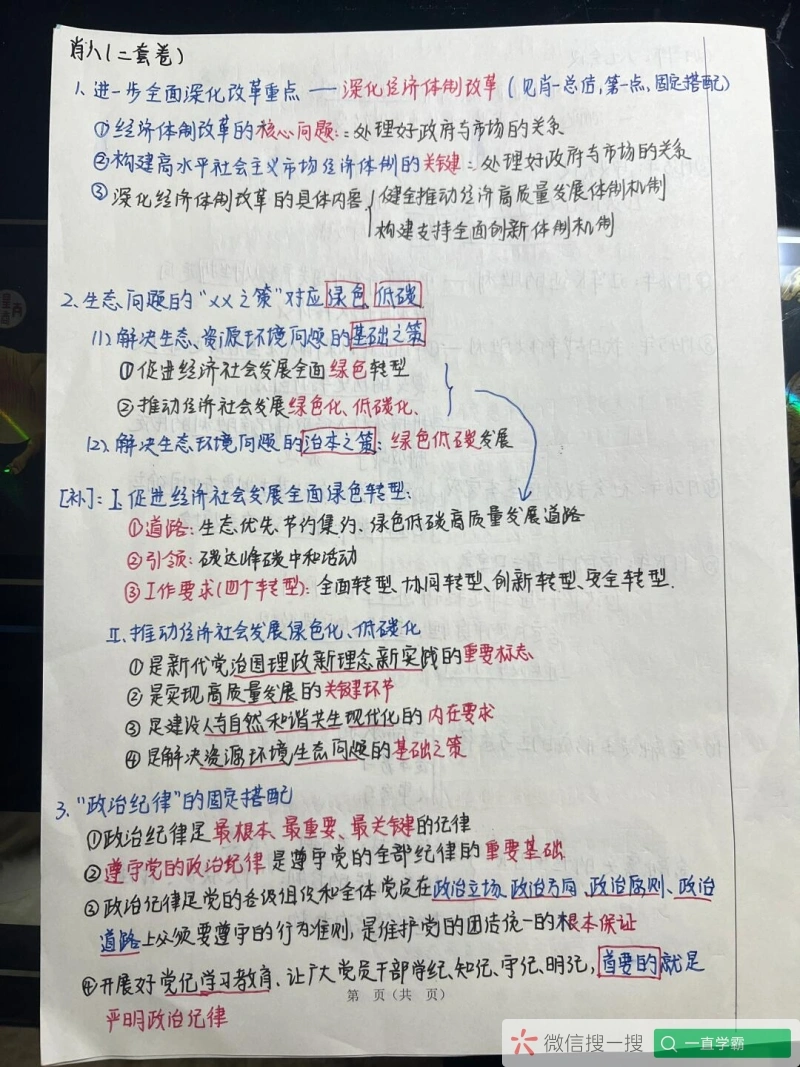 肖八(二套卷)
1、进一步全面深化改革重点 — 深化经济体制改革(见肖一总结,第一点,固定搭配)
①经济体制改革的核心问题:处理好政府与市场的关系
②构建高水平社会主义市场经济体制的关键:处理好政府与市场的关系
③深化经济体制改革的具体内容 健全推动经济高质量发展体制机制
构建支持全面创新体制机制
2、生态问题的“XX之策”对应绿色、低碳
(1)解决生态、资源环境问题的基础之策
①促进经济社会发展全面绿色转型
②推动经济社会发展绿色化、低碳化、
(2)、解决生态环境问题的治本之策:绿色低碳发展
[补]:I、促进经济社会发展全面绿色转型:
①道路:生态优先、节约集约、绿色低碳高质量发展道路
②引领:碳达峰碳中和活动
③工作要求(四个转型):全面转型、协同转型、创新转型、安全转型.
II、推动经济社会发展绿色化、低碳化
①是新代党治国理政新理念新实践的重要标志
②是实现高质量发展的关键环节
③是建设人与自然和谐共生现代化的内在要求
④是解决资源环境生态问题的基础之策
3、“政治纪律”的固定搭配
①政治纪律是最根本、最重要、最关键的纪律
②遵守党的政治纪律是遵守党的全部纪律的重要基础
③政治纪律是党的各级组织和全体党员在政治立场、政治方向、政治原则、政治
道路上必须要遵守的行为准则,是维护党的团结统一的根本保证
④开展好党纪学习教育、让广大党员干部学纪、知纪、守纪、明纪,首要的就是
第 页(共 页)
严明政治纪律
微信搜一搜
一直学霸